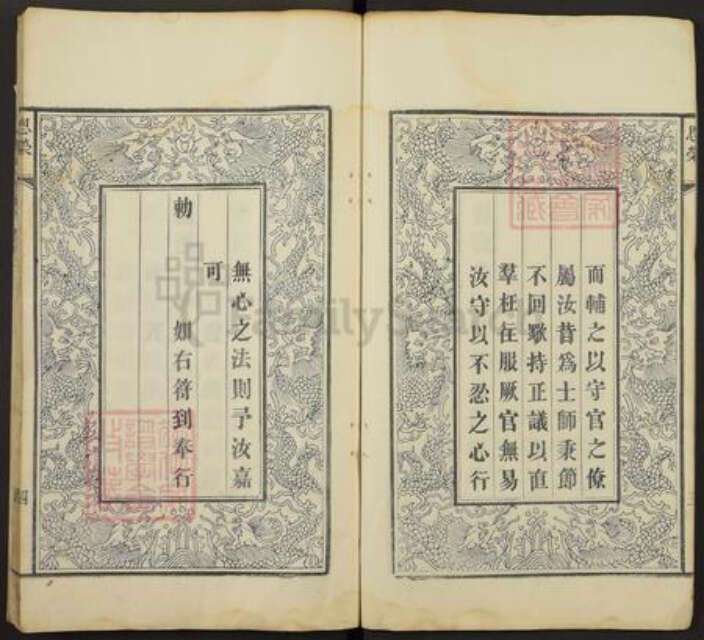 而輔之以守官之僚
屬汝昔為士師秉節
不回歟持正議以直
羣枉在服厥官無易
汝守以不忍之心行
無心之法則予汝嘉
可
勅
如右符到奉行
恩榮
四
FamilySearch